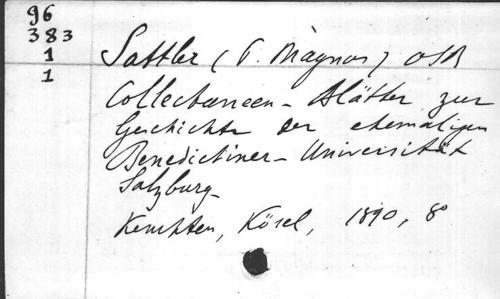 96
383
1
1
Sattler (P. Magnus) OSB
Collectaneen-Blätter zur
Geschichte der ehemaligen
Benedictiner-Universität
Salzburg
Kempten, Kösel, 1890, 8°